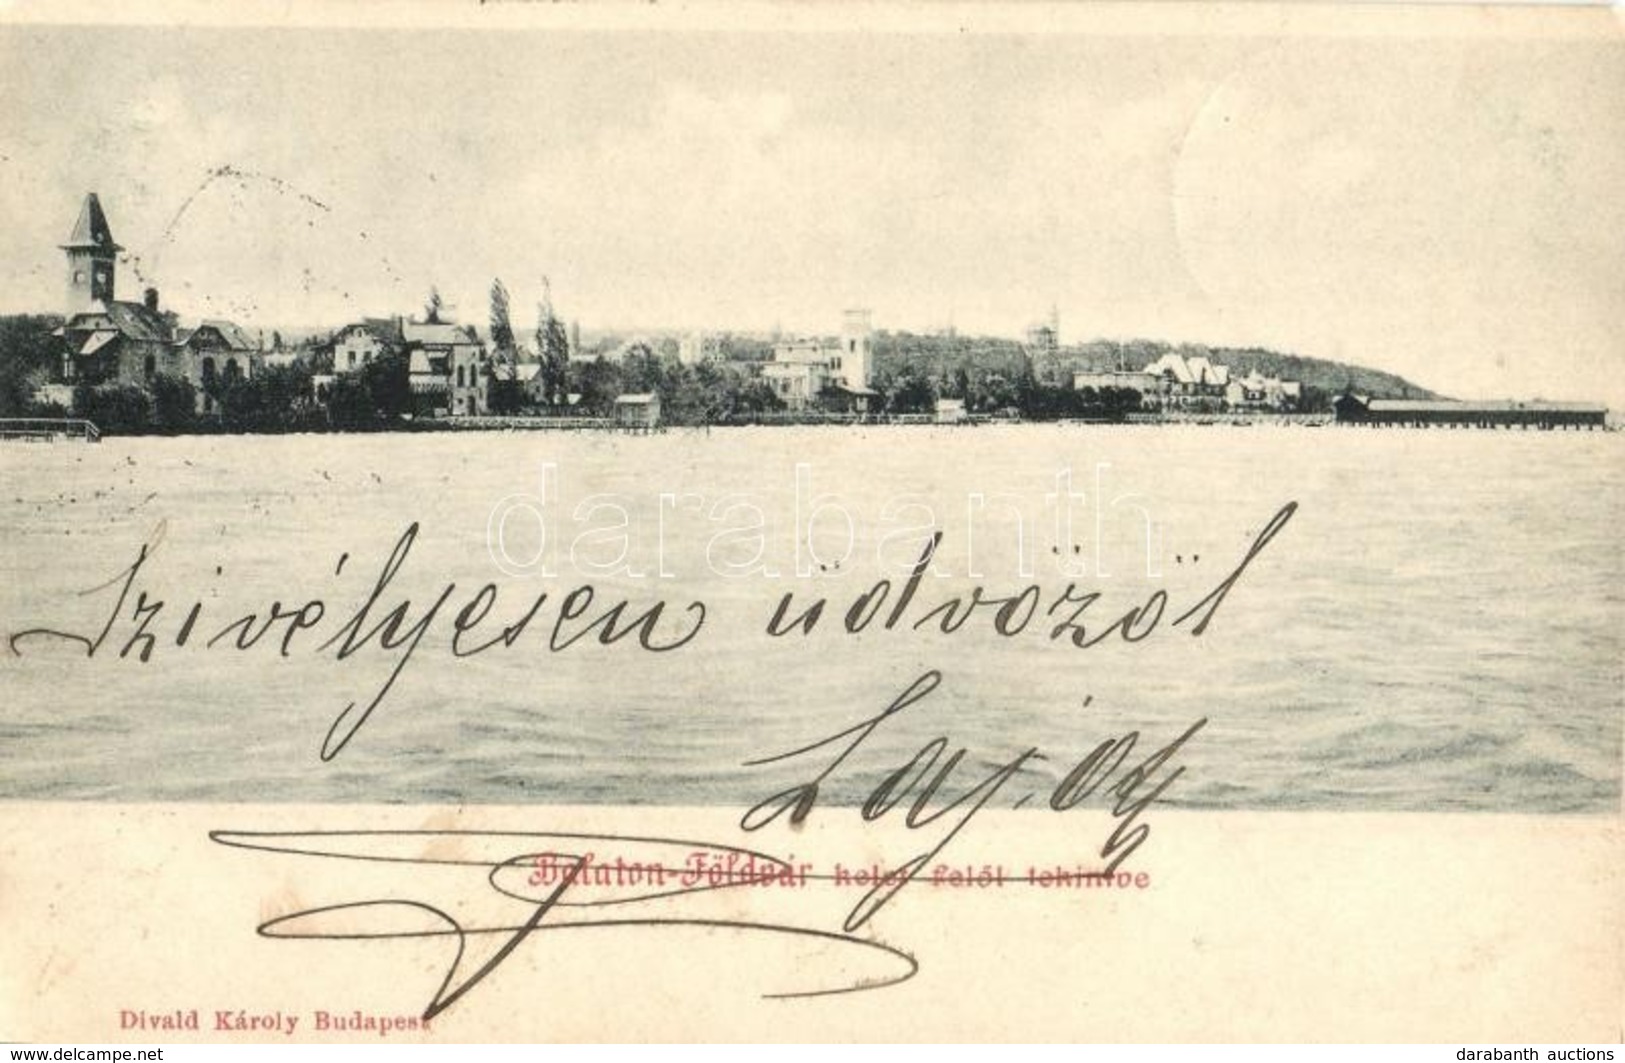 darabanth
Szivélyesen üdvözöl
Lajos
Balaton-Földvár kelet felől tekintve
Divald Károly Budapest
www.delcampe.net
darabanth auctions